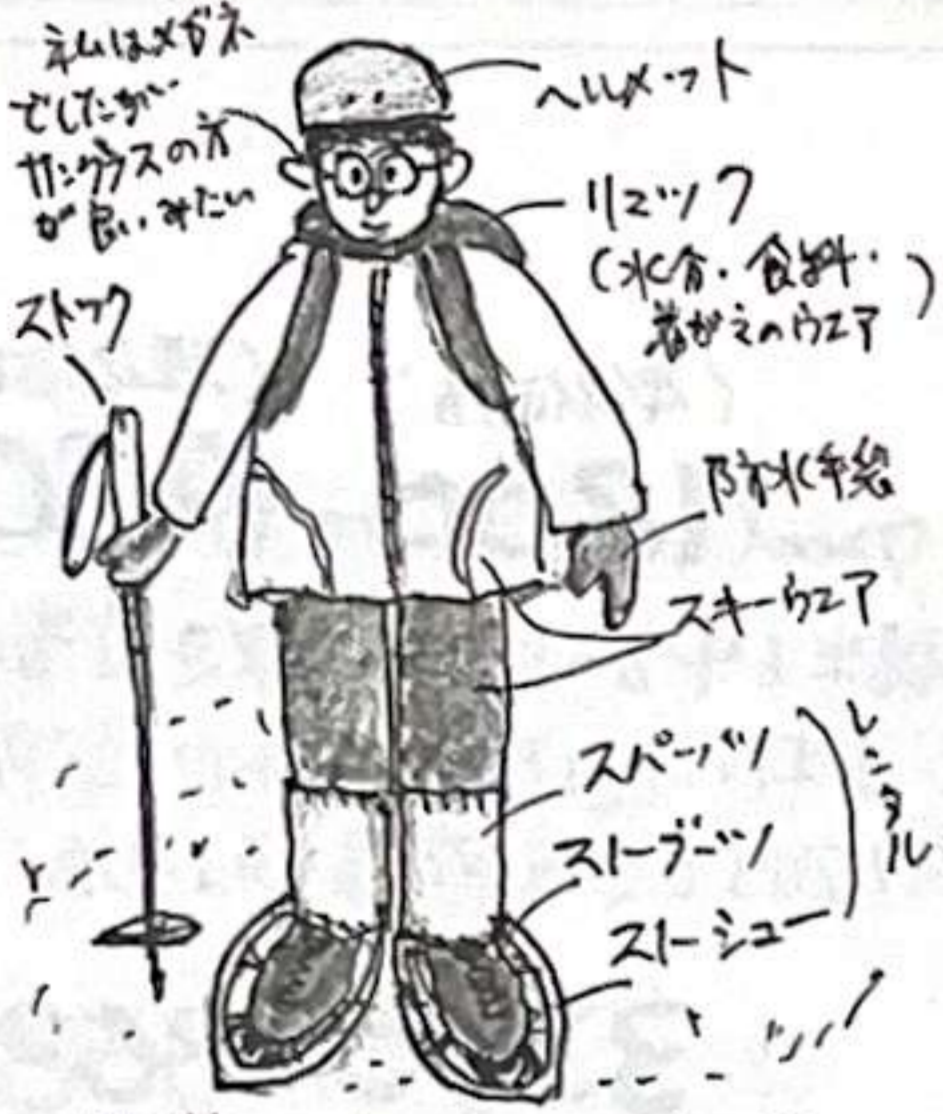 私はメガネ
でしたが
サングラスの方
が良いみたい
ヘルメット
リュック
(水分・食料・
着がえのウエア)
ストック
防水手袋
スキーウエア
スパッツ
スノーブーツ
スノーシュー
レンタル